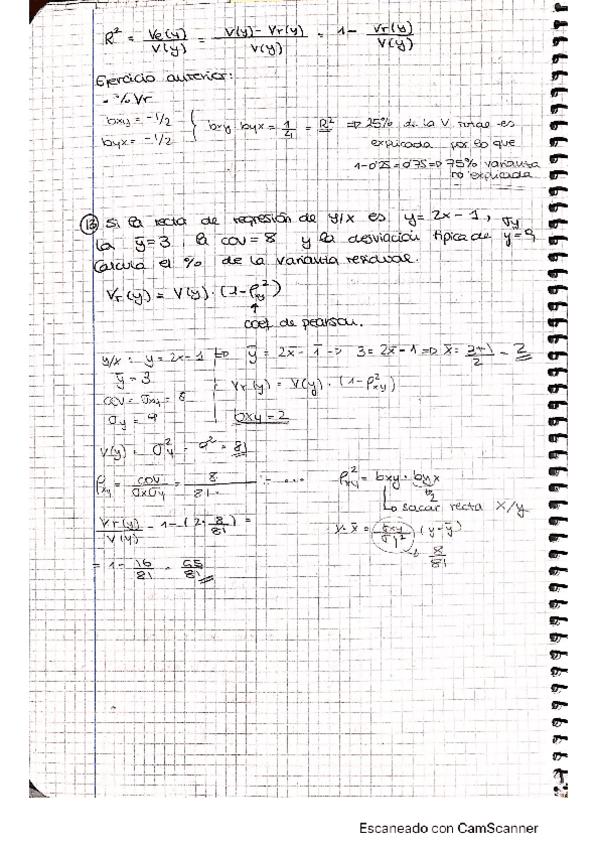 R² = Ve(y)/V(y) = V(y) - Vr(y)/V(y) = 1 - Vr(y)/V(y)
Ejercicio anterior:
- % Vr
bxy = -1/2
byx = -1/2
bxy byx = 1/4 = R² => 25% de la V. total es
explicada por lo que
1-0'25 = 0'75 => 75% varianza
no explicada
13 Si la recta de regresión de y/x es y = 2x - 1, σy
la ȳ = 3, la cov = 8 y la desviación típica de y = 9,
Calcula el % de la varianza residual.
Vr(y) = V(y) · (1 - ρ²xy)
coef de pearson.
y/x : y = 2x - 1 => ȳ = 2x̄ - 1 => 3 = 2x̄ - 1 => x̄ = 3+1/2 = 2
ȳ = 3
Vr(y) = V(y) · (1 - ρ²xy)
cov = σxy = 8
σy = 9
bxy = 2
V(y) = σ²y = 9² = 81
ρxy = cov/σxσy = 8/81
ρ²xy = bxy · byx
sacar recta X/y
Vr(y)/V(y) = 1 - (2 · 8/81) =
x - x̄ = σxy/σy² (y - ȳ)
8/81
= 1 - 16/81 = 65/81
Escaneado con CamScanner